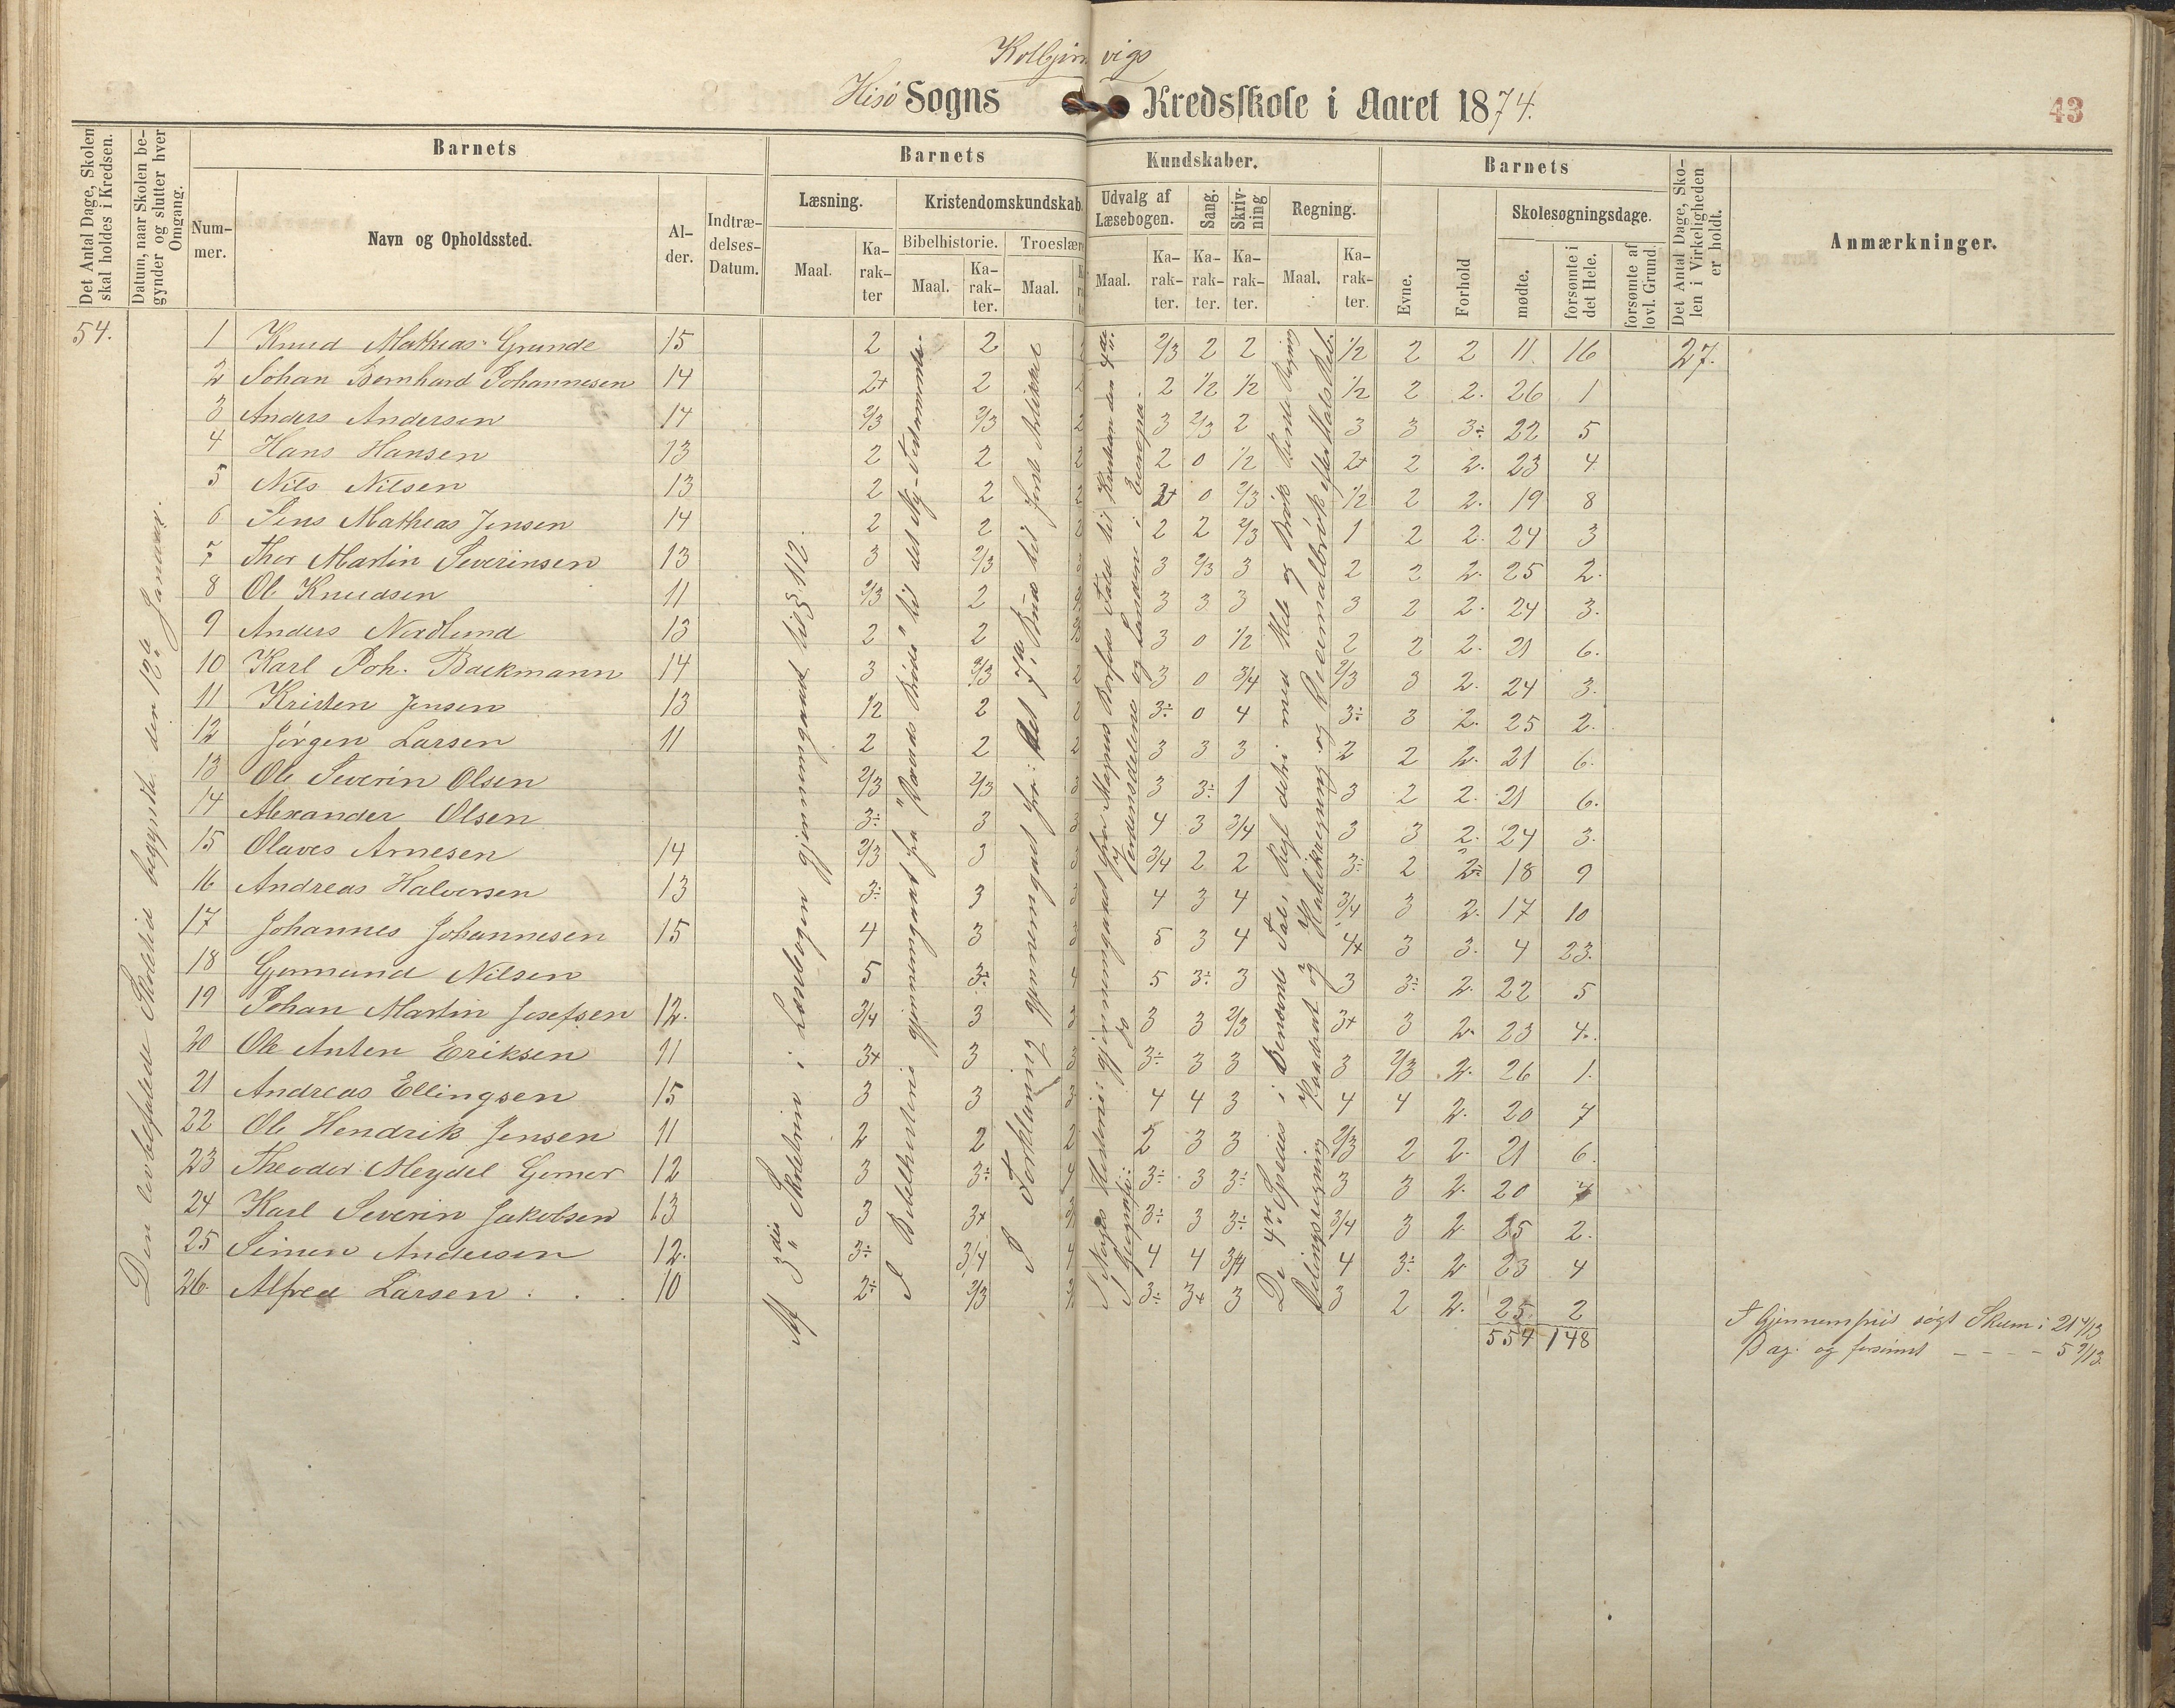 Kolbjørnsvigs
Hisø Sogns Kredsskole i Aaret 1874.
43
Det Antal Dage, Skolen skal holdes i Kredsen.
Datum, naar Skolen begynder og slutter hver Omgang.
Barnets
Nummer.
Navn og Opholdssted.
Alder.
Indtrædelses-Datum.
Barnets Kundskaber.
Læsning.
Maal.
Karakter
Kristendomskundskab.
Bibelhistorie.
Maal.
Karakter.
Troeslære
Maal.
Udvalg af Læsebogen.
Maal.
Karakter.
Sang.
Karakter.
Skrivning
Karakter.
Regning.
Maal.
Karakter.
Barnets
Evne.
Forhold
Skolesøgningsdage.
mødte.
forsømte i det Hele.
forsømte af lovl. Grund.
Det Antal Dage, Skolen i Virkeligheden er holdt.
Anmærkninger.
54.
Den lovbefalede Skoletid begyndte den 12te Januar.
1 Knud Mathias Grunde 15 2 2 2 2/3 2 2 1/2 2 2 11 16 27.
2 Johan Bernhard Johannesen 14 2+ 2 2 2 1/2 1/2 1/2 2 2. 26 1
3 Anders Andersen 14 2/3 2/3 2 3 2/3 2 3 3 3÷ 22 5
4 Hans Hansen 13 2 2 2 2 0 1/2 2+ 2 2. 23 4
5 Nils Nilsen 13 2 2 2 2+ 0 2/3 1/2 2 2. 19 8
6 Jens Mathias Jensen 14 2 2 2 2 2 2/3 1 2 2. 24 3
7 Thor Martin Severinsen 13 3 2/3 3 3 2/3 3 2 2 2. 25 2.
8 Ole Knudsen 11 2/3 2 3 3 3 3 2 2. 24 3.
9 Anders Nordlund 13 2 2 3 0 1/2 2 2 2. 21 6.
10 Karl Joh. Backmann 14 3 2/3 2 3 0 3/4 2/3 3 2. 24 3.
11 Kristen Jensen 13 1/2 2 2 3÷ 0 4 3÷ 3 2. 25 2.
12 Jörgen Larsen 11 2 2 2 3 3 3 2 2 2. 21 6.
13 Ole Severin Olsen 2/3 2/3 3 3 3÷ 1 3 2 2. 21 6.
14 Alexander Olsen 3÷ 3 3 4 3 3/4 3 3 2. 24 3.
15 Olaves Arnesen 14 2/3 3 3 3/4 2 2 3÷ 2 2÷ 18 9
16 Andreas Halvorsen 13 3÷ 3 3 4 3 4 3/4 3 2. 17 10
17 Johannes Johannesen 15 4 3 3 5 3 4 4+ 3 3. 4 23.
18 Gunmund Nilsen 5 3÷ 4 5 3÷ 3 3 3÷ 2. 22 5
19 Johan Martin Josefsen 12. 3/4 3 3 3 3 2/3 3+ 3 2. 23 4.
20 Ole Anton Eriksen 11 3+ 3 3 3÷ 3 3 3 2/3 2. 26 1.
21 Andreas Ellingsen 15 3 3 3 4 4 3 4 4 2. 20 7
22 Ole Hendrik Jensen 11 2 2 2 2 3 3 2/3 2 2. 21 6.
23 Theodor Meydel Gomer 12 3 3÷ 4 3÷ 3 3÷ 3 3 2. 20 7
24 Karl Severin Jakobsen 13 3 3+ 3÷ 3 3÷ 3/4 3 2. 25 2.
25 Simen Andersen 12. 3÷ 3/4 4 4 4 3/4 4 3÷ 2 23 4
26. Alfred Larsen . . . 10 2÷ 2/3 3÷ 3+ 3 3 2 2. 25. 2
554 148
Af 3die Skoletrin i Læsebogen gjennemgaaet til S. 112.
I Bibelhistorie gjennemgaaet fra "Paulus Reise" til det Ny-Testamente.
I Forklaring gjennemgaad fra: det 7de Bud til første Artikel
I Norges Historie: gjennemgaad fra Magnus Barfods Død til Kristian den 4de.
I Geografi: Jo Verdensdelene og Landene i Europa.
De 4re Species i Benævnte Tal, Regl detri med Hele og Brök Rente Regning
Delingsregning Kvadrat og Kubikregning og Decimalbrök efter Hals Reb.
I Gjennemsnit søgt Skum: 21 4/13
Dag. og forsömt - - - - 5 9/13.